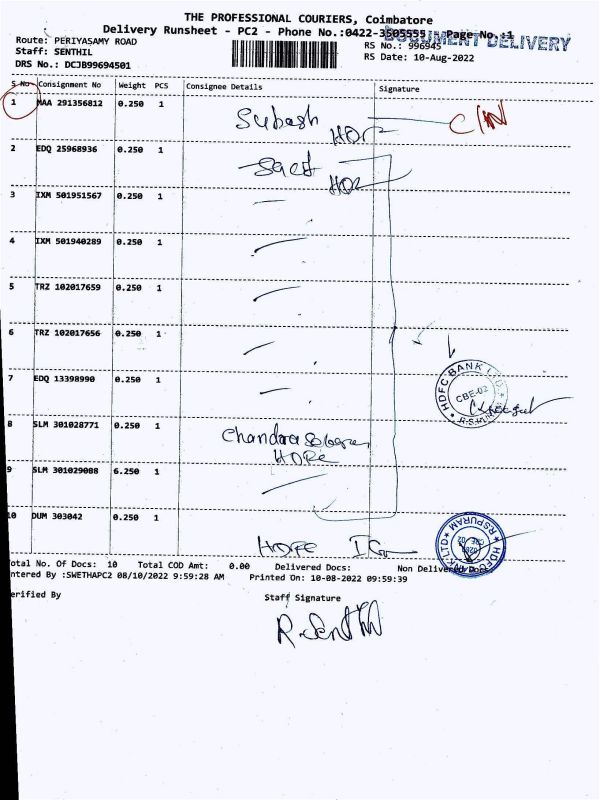 THE PROFESSIONAL COURIERS, Coimbatore
Delivery Runsheet - PC2 - Phone No.:0422-3505555 - Page No.:1
DOCUMENT DELIVERY
Route: PERIYASAMY ROAD
RS No.: 996945
Staff: SENTHIL
RS Date: 10-Aug-2022
DRS No.: DCJB99694501
S No Consignment No Weight PCS Consignee Details Signature
1 MAA 291356812 0.250 1 Subash
2 EDQ 25968936 0.250 1
3 IXM 501951567 0.250 1
4 IXM 501940289 0.250 1
5 TRZ 102017659 0.250 1
6 TRZ 102017656 0.250 1
7 EDQ 13398990 0.250 1
HDFC BANK LTD. * R.S.PURAM *
CBE-02
8 SLM 301028771 0.250 1
9 SLM 301029088 6.250 1
10 DUM 303042 0.250 1
HDFC BANK LTD * RSPURAM *
otal No. Of Docs: 10 Total COD Amt: 0.00 Delivered Docs: Non Delivered Docs
ntered By :SWETHAPC2 08/10/2022 9:59:28 AM Printed On: 10-08-2022 09:59:39
erified By Staff Signature
R. Senthil